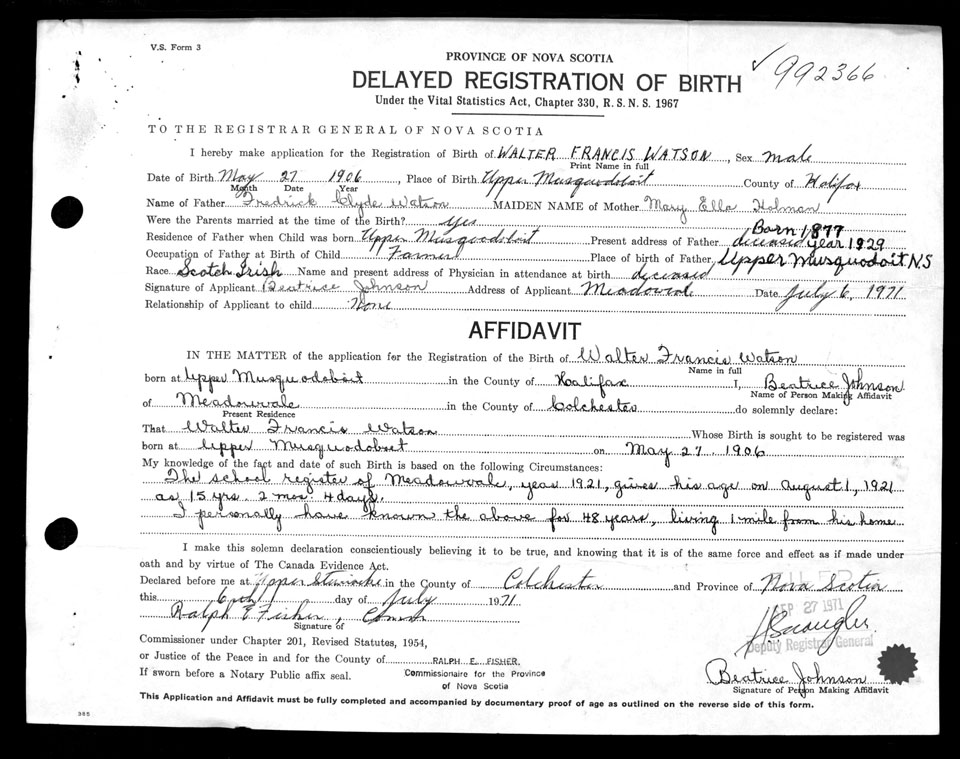 V.S. Form 3
PROVINCE OF NOVA SCOTIA
✓992366
DELAYED REGISTRATION OF BIRTH
Under the Vital Statistics Act, Chapter 330, R.S.N.S. 1967
TO THE REGISTRAR GENERAL OF NOVA SCOTIA
I hereby make application for the Registration of Birth of WALTER FRANCIS WATSON, Sex male
Print Name in full
Date of Birth May 27 1906, Place of Birth Upper Musquodoboit County of Halifax
Month Date Year
Name of Father Fredrick Clyde Watson MAIDEN NAME of Mother Mary Ella Holman
Were the Parents married at the time of the Birth? yes Born 1877
Residence of Father when Child was born Upper Musquodoboit Present address of Father diceased year 1929
Occupation of Father at Birth of Child Farmer Place of birth of Father Upper Musquodoit N.S
Race Scotch Irish Name and present address of Physician in attendance at birth diceased
Signature of Applicant Beatrice Johnson Address of Applicant Meadowvale Date July 6, 1971
Relationship of Applicant to child None
AFFIDAVIT
IN THE MATTER of the application for the Registration of the Birth of Walter Francis Watson
Name in full
born at Upper Musquodoboit in the County of Halifax I, Beatrice Johnson
Name of Person Making Affidavit
of Meadowvale in the County of Colchester do solemnly declare:
Present Residence
That Walter Francis Watson Whose Birth is sought to be registered was
born at Upper Musquodoboit on May 27 1906
My knowledge of the fact and date of such Birth is based on the following Circumstances:
The school register of Meadowvale, year 1921, gives his age on August 1, 1921
as 15 yrs. 2 mos. 4 days.
I personally have known the above for 48 years, living 1 mile from his home
I make this solemn declaration conscientiously believing it to be true, and knowing that it is of the same force and effect as if made under
oath and by virtue of The Canada Evidence Act.
Declared before me at Upper Stewiacke in the County of Colchester and Province of Nova Scotia
this 6th day of July 1971
SEP 27 1971
Ralph E Fisher, Comm
Signature of
Deputy Registrar General
Commissioner under Chapter 201, Revised Statutes, 1954,
or Justice of the Peace in and for the County of RALPH E. FISHER.
If sworn before a Notary Public affix seal. Commissionaire for the Province
of Nova Scotia
Beatrice Johnson
Signature of Person Making Affidavit
This Application and Affidavit must be fully completed and accompanied by documentary proof of age as outlined on the reverse side of this form.
385